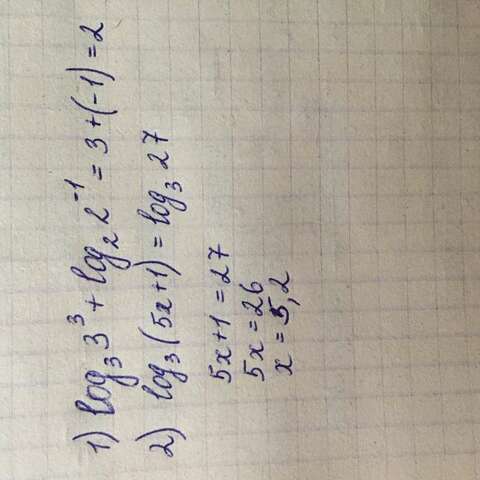 1) log₃ 3³ + log₂ 2⁻¹ = 3 + (-1) = 2
2) log₃ (5x+1) = log₃ 27
5x+1 = 27
5x = 26
x = 5,2